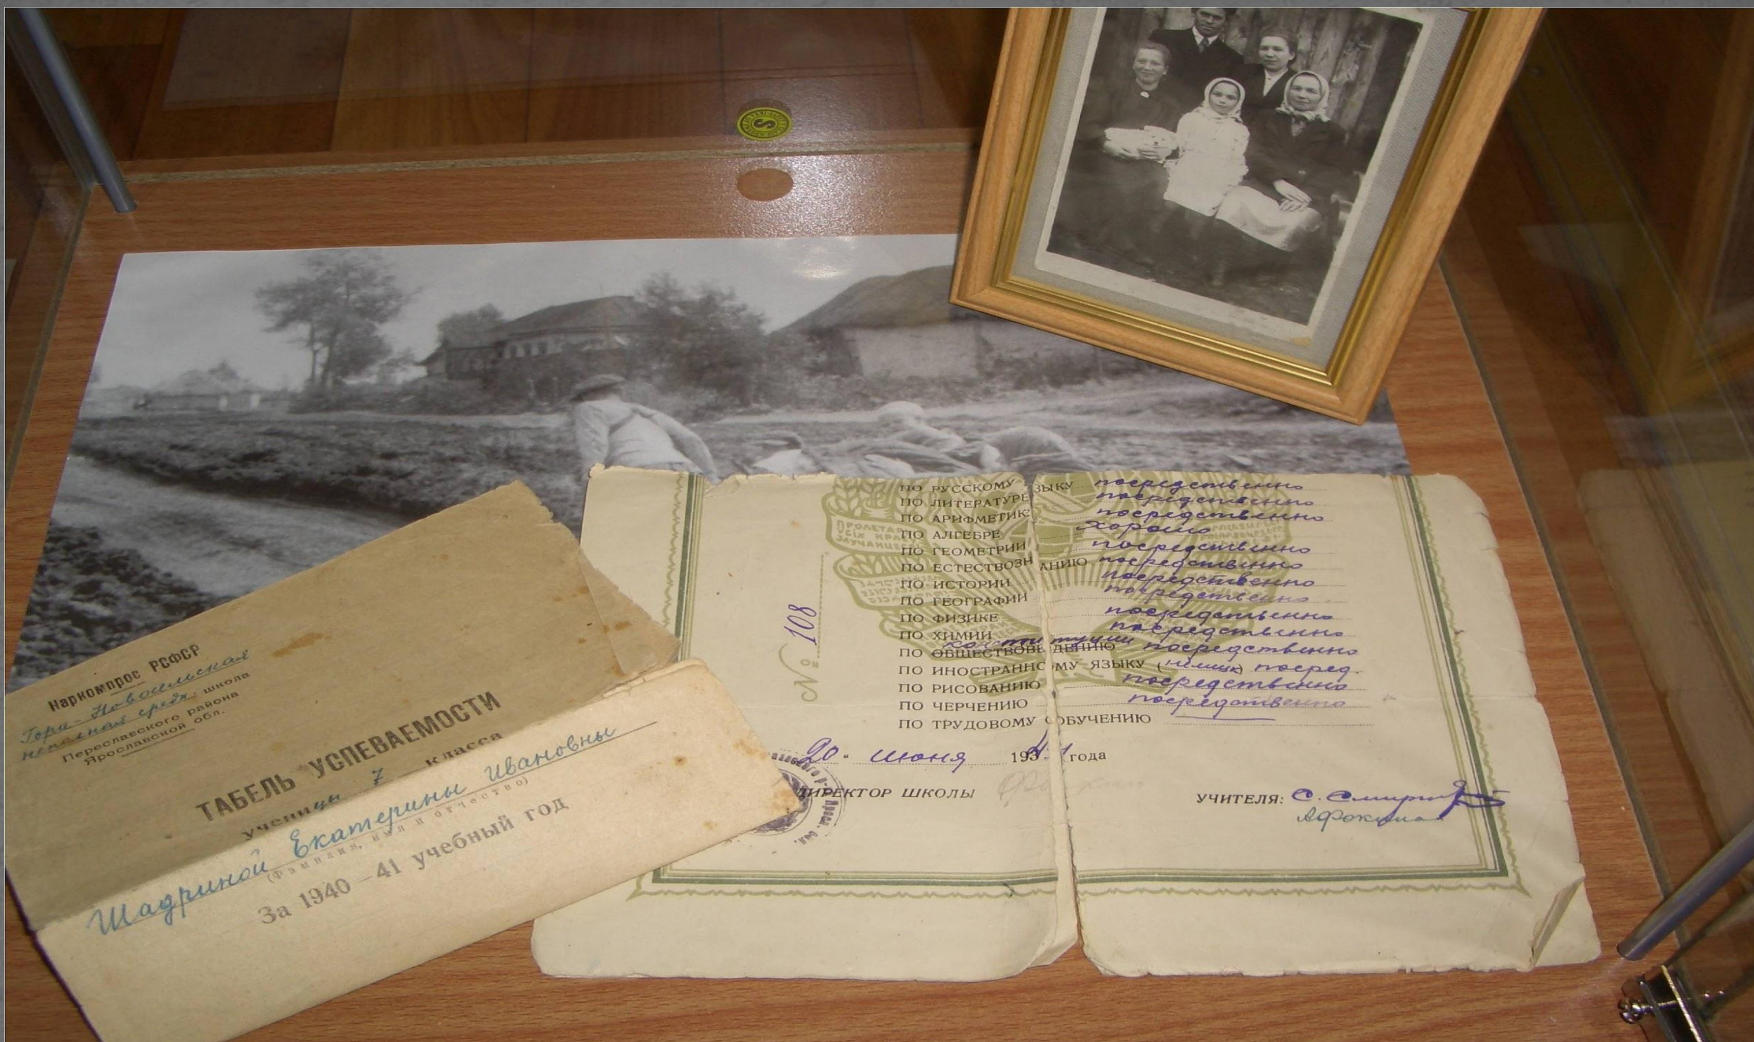 Наркомпрос РСФСР
Гора-Новосельская
неполная средн. школа
Переславского района
Ярославской обл.
ТАБЕЛЬ УСПЕВАЕМОСТИ
ученицы 7 класса
Шадриной Екатерины Ивановны
(Фамилия, имя и отчество)
За 1940–41 учебный год
№ 108
ПО РУССКОМУ ЯЗЫКУ посредственно
ПО ЛИТЕРАТУРЕ посредственно
ПО АРИФМЕТИКЕ посредственно
ПО АЛГЕБРЕ хорошо
ПО ГЕОМЕТРИИ посредственно
ПО ЕСТЕСТВОЗНАНИЮ посредственно
ПО ИСТОРИИ посредственно
ПО ГЕОГРАФИИ посредственно
ПО ФИЗИКЕ посредственно
ПО ХИМИИ посредственно
конституции
ПО ОБЩЕСТВОВЕДЕНИЮ посредственно
ПО ИНОСТРАННОМУ ЯЗЫКУ (немецк) посред.
ПО РИСОВАНИЮ посредственно
ПО ЧЕРЧЕНИЮ посредственно
ПО ТРУДОВОМУ ОБУЧЕНИЮ
20. июня 1941 года
ДИРЕКТОР ШКОЛЫ
УЧИТЕЛЯ: С. Смирн
АФокина